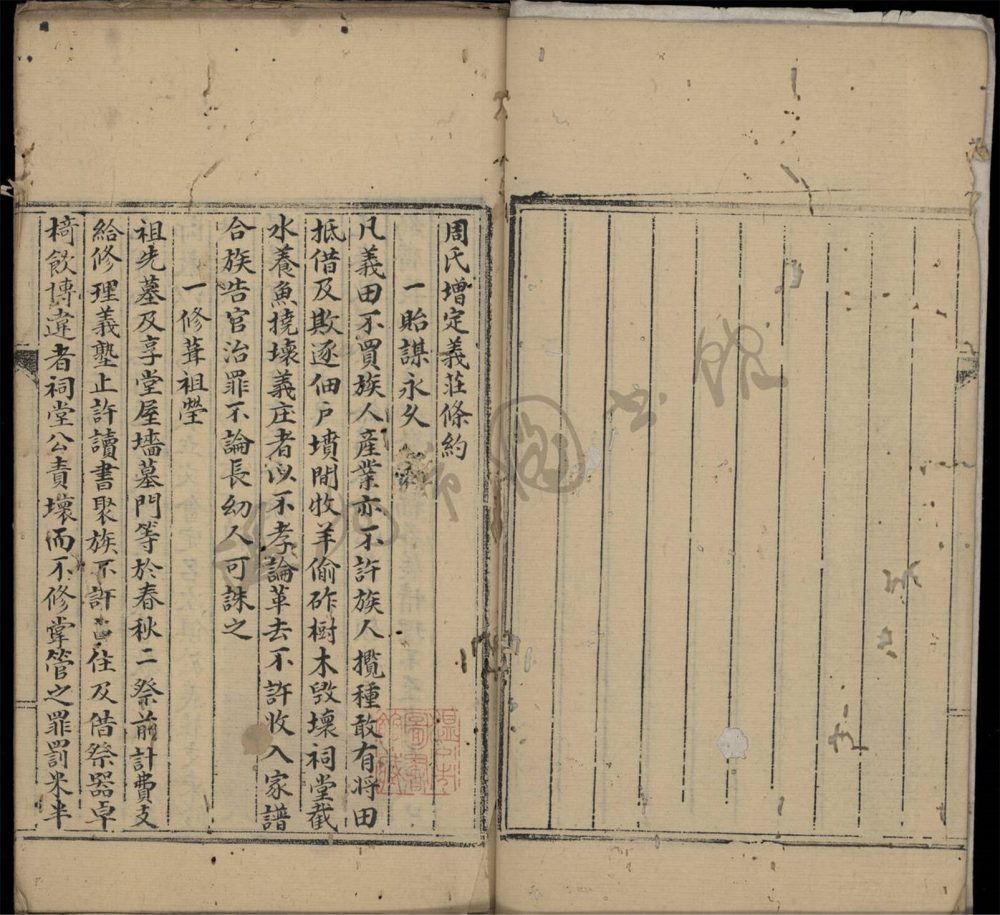 周氏增定義莊條約
一貽謀永久
凡義田不買族人産業亦不許族人攬種敢有將田
抵借及欺逐佃户墳間收羊偷砟樹木毀壞祠堂截
水養魚撓壞義庄者以不孝論革去不許收入家譜
合族告官治罪不論長幼人可誅之
一修葺祖塋
祖先墓及享堂屋墻墓門等於春秋二祭前計費支
給修理義塾止許讀書聚族不許住及借祭器卓
椅飲博違者祠堂公責壞而不修掌管之罪罰米半